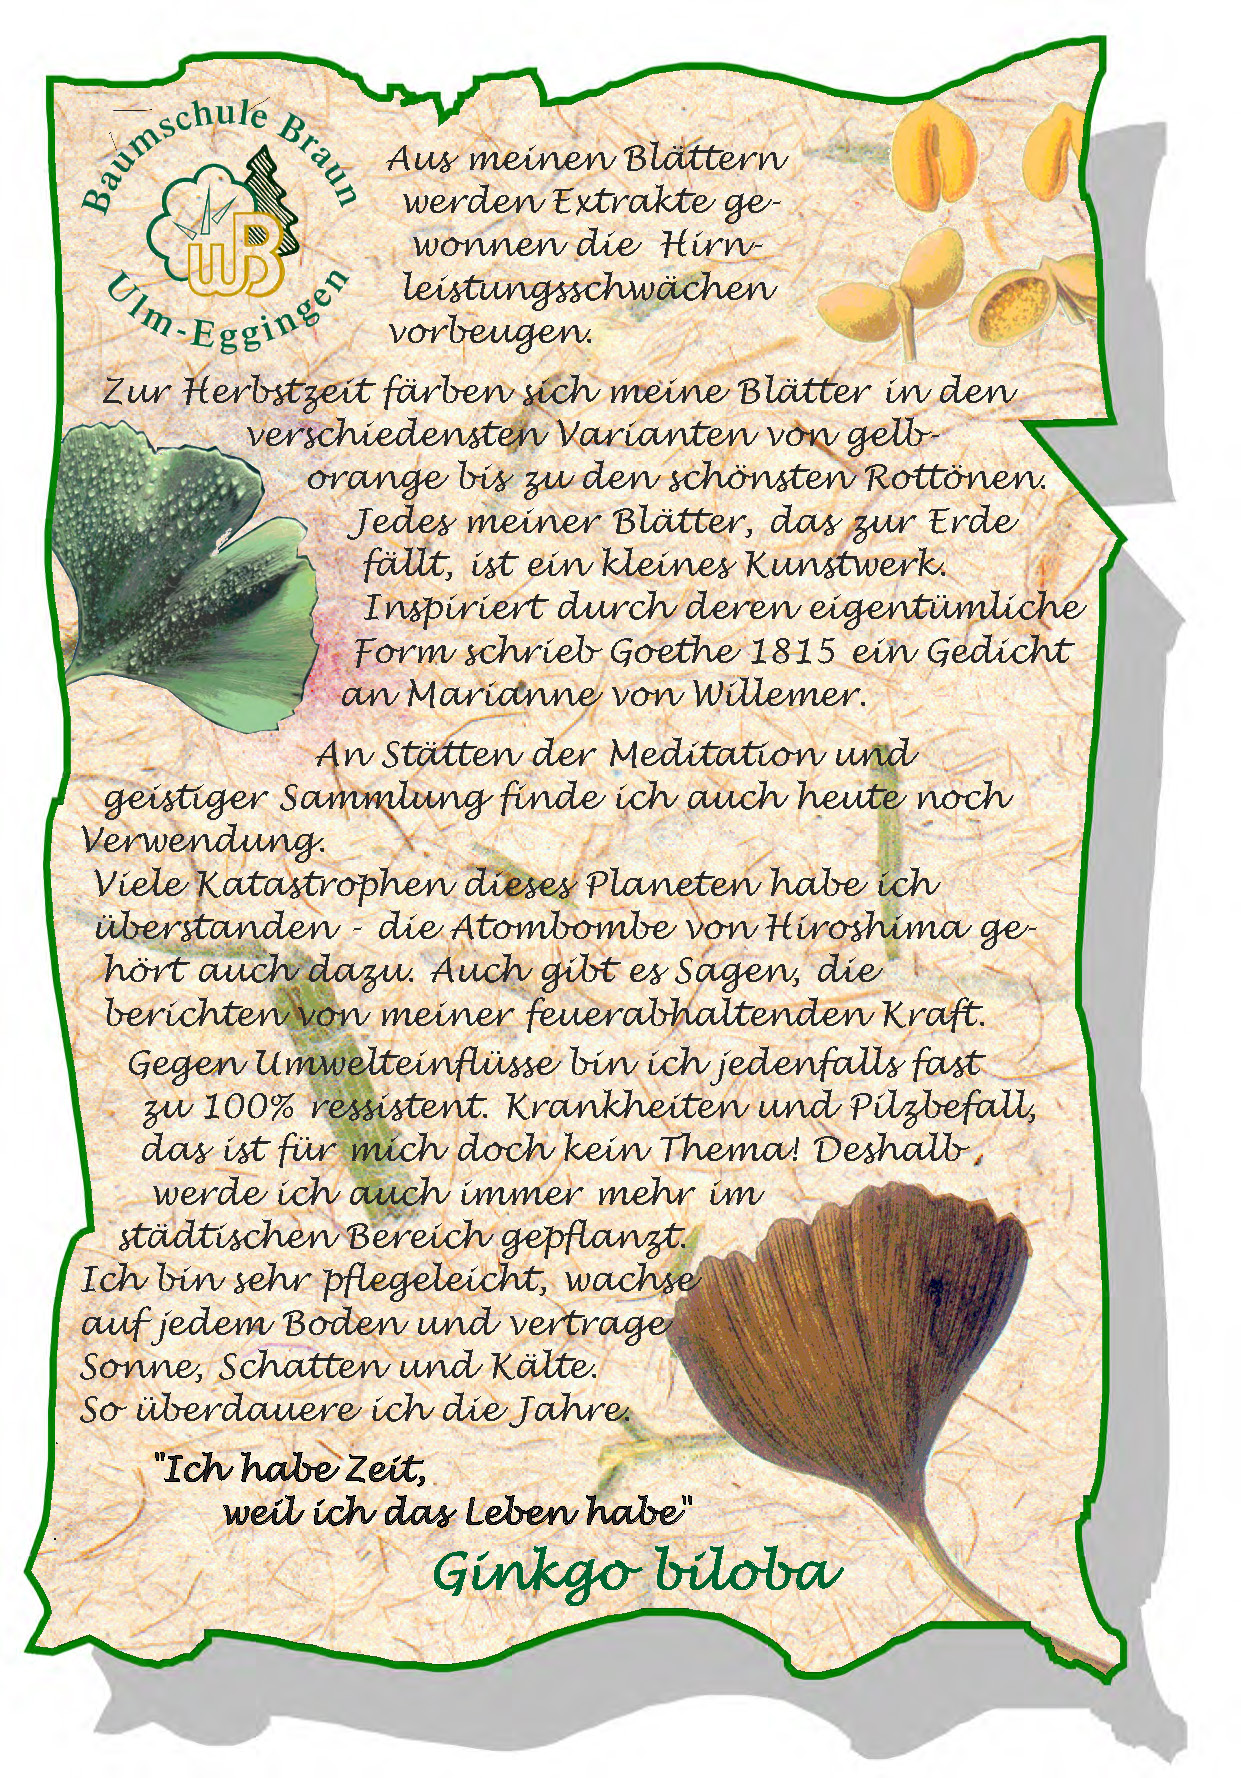 Baumschule Braun
Ulm-Eggingen
WB
Aus meinen Blättern
werden Extrakte ge-
wonnen die Hirn-
leistungsschwächen
vorbeugen.
Zur Herbstzeit färben sich meine Blätter in den
verschiedensten Varianten von gelb-
orange bis zu den schönsten Rottönen.
Jedes meiner Blätter, das zur Erde
fällt, ist ein kleines Kunstwerk.
Inspiriert durch deren eigentümliche
Form schrieb Goethe 1815 ein Gedicht
an Marianne von Willemer.
An Stätten der Meditation und
geistiger Sammlung finde ich auch heute noch
Verwendung.
Viele Katastrophen dieses Planeten habe ich
überstanden - die Atombombe von Hiroshima ge-
hört auch dazu. Auch gibt es Sagen, die
berichten von meiner feuerabhaltenden Kraft.
Gegen Umwelteinflüsse bin ich jedenfalls fast
zu 100% ressistent. Krankheiten und Pilzbefall,
das ist für mich doch kein Thema! Deshalb
werde ich auch immer mehr im
städtischen Bereich gepflanzt.
Ich bin sehr pflegeleicht, wachse
auf jedem Boden und vertrage
Sonne, Schatten und Kälte.
So überdauere ich die Jahre.
"Ich habe Zeit,
weil ich das Leben habe"
Ginkgo biloba